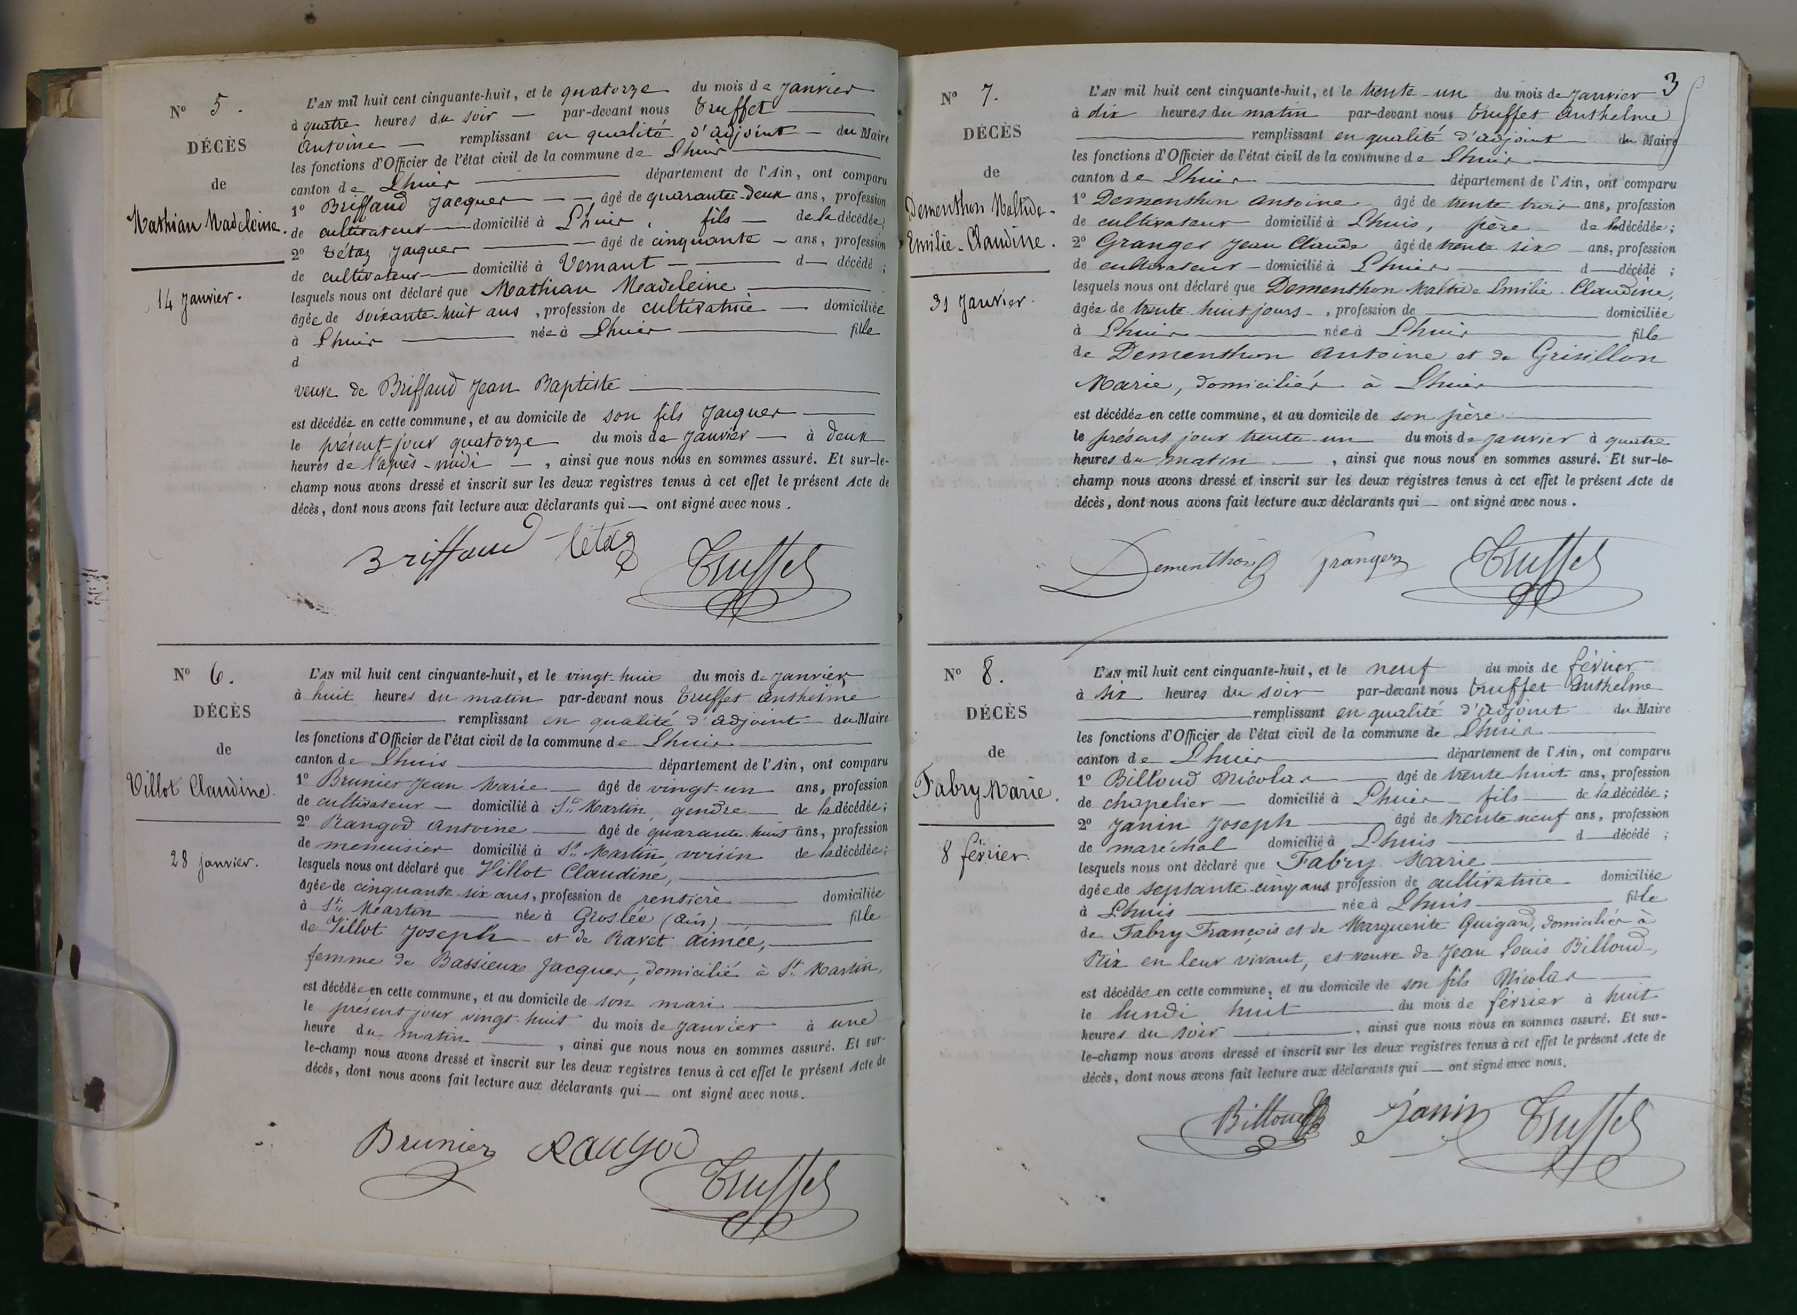 N° 5.
DÉCÈS
de
Mathian Madeleine.
14 Janvier.
L'AN mil huit cent cinquante-huit, et le quatorze du mois de Janvier
à quatre heures du soir — par-devant nous Truffet
Antoine — remplissant en qualité d'adjoint — du Maire
les fonctions d'Officier de l'état civil de la commune de Lhuis
canton de Lhuis département de l'Ain, ont comparu
1° Briffaud Jacques — âgé de quarante-deux ans, profession
de cultivateur — domicilié à Lhuis, fils — de la décédée;
2° Tétaz Jacques — âgé de cinquante — ans, profession
de cultivateur — domicilié à Vernant — d — décédé ;
lesquels nous ont déclaré que Mathian Madeleine
âgée de soixante-huit ans, profession de cultivatrice — domiciliée
à Lhuis — née à Lhuis — fille
d
veuve de Briffaud Jean Baptiste
est décédée en cette commune, et au domicile de son fils Jacques
le présent jour quatorze du mois de Janvier — à deux
heures de l'après-midi —, ainsi que nous nous en sommes assuré. Et sur-le-
champ nous avons dressé et inscrit sur les deux registres tenus à cet effet le présent Acte de
décès, dont nous avons fait lecture aux déclarants qui — ont signé avec nous.
Briffaud Tétaz Truffet
N° 6.
DÉCÈS
de
Villot Claudine.
28 Janvier.
L'AN mil huit cent cinquante-huit, et le vingt-huit du mois de Janvier
à huit heures du matin par-devant nous Truffet Anthelme
remplissant en qualité d'adjoint — du Maire
les fonctions d'Officier de l'état civil de la commune de Lhuis
canton de Lhuis département de l'Ain, ont comparu
1° Brunier Jean Marie — âgé de vingt-un ans, profession
de cultivateur — domicilié à St Martin, gendre — de la décédée;
2° Rangod Antoine — âgé de quarante-huit ans, profession
de menuisier domicilié à St Martin, voisin de la décédée;
lesquels nous ont déclaré que Villot Claudine,
âgée de cinquante six ans, profession de rentière — domiciliée
à St Martin — née à Groslée (Ain) — fille
de Villot Joseph et de Ravet Aimée,
femme de Bassieux Jacques, domicilié à St Martin,
est décédée en cette commune, et au domicile de son mari
le présent jour vingt-huit du mois de Janvier à une
heure du matin —, ainsi que nous nous en sommes assuré. Et sur-
le-champ nous avons dressé et inscrit sur les deux registres tenus à cet effet le présent Acte de
décès, dont nous avons fait lecture aux déclarants qui — ont signé avec nous.
Brunier Rangod
Truffet
3
N° 7.
DÉCÈS
de
Dementhon Maltide-
Emilie-Claudine.
31 Janvier.
L'AN mil huit cent cinquante-huit, et le trente-un du mois de Janvier
à dix heures du matin par-devant nous Truffet Anthelme
remplissant en qualité d'adjoint du Maire
les fonctions d'Officier de l'état civil de la commune de Lhuis
canton de Lhuis département de l'Ain, ont comparu
1° Dementhon Antoine âgé de trente trois ans, profession
de cultivateur domicilié à Lhuis, père de la décédée;
2° Granger Jean Claude âgé de trente six ans, profession
de cultivateur — domicilié à Lhuis — d — décédé ;
lesquels nous ont déclaré que Dementhon Maltide Emilie Claudine,
âgée de trente-huit jours —, profession de — domiciliée
à Lhuis — née à Lhuis — fille
de Dementhon Antoine et de Grisillon
Marie, domiciliés à Lhuis
est décédée en cette commune, et au domicile de son père
le présent jour trente-un du mois de Janvier à quatre
heures du matin —, ainsi que nous nous en sommes assuré. Et sur-le-
champ nous avons dressé et inscrit sur les deux registres tenus à cet effet le présent Acte de
décès, dont nous avons fait lecture aux déclarants qui — ont signé avec nous.
Dementhon Granger Truffet
N° 8.
DÉCÈS
de
Fabry Marie.
8 février.
L'AN mil huit cent cinquante-huit, et le neuf du mois de février
à six heures du soir — par-devant nous Truffet Anthelme
remplissant en qualité d'adjoint du Maire
les fonctions d'Officier de l'état civil de la commune de Lhuis
canton de Lhuis département de l'Ain, ont comparu
1° Billoud Nicolas — âgé de trente-huit ans, profession
de chapelier — domicilié à Lhuis — fils — de la décédée;
2° Janin Joseph — âgé de trente neuf ans, profession
de maréchal domicilié à Lhuis — d — décédé ;
lesquels nous ont déclaré que Fabry Marie
âgée de septante-cinq ans profession de cultivatrice domiciliée
à Lhuis — née à Lhuis — fille
de Fabry François et de Marguerite Guigard, domiciliés à
Rix en leur vivant, et veuve de Jean Louis Billoud,
est décédée en cette commune, et au domicile de son fils Nicolas
le lundi huit du mois de février à huit
heures du soir —, ainsi que nous nous en sommes assuré. Et sur-
le-champ nous avons dressé et inscrit sur les deux registres tenus à cet effet le présent Acte de
décès, dont nous avons fait lecture aux déclarants qui — ont signé avec nous.
Billoud Janin Truffet